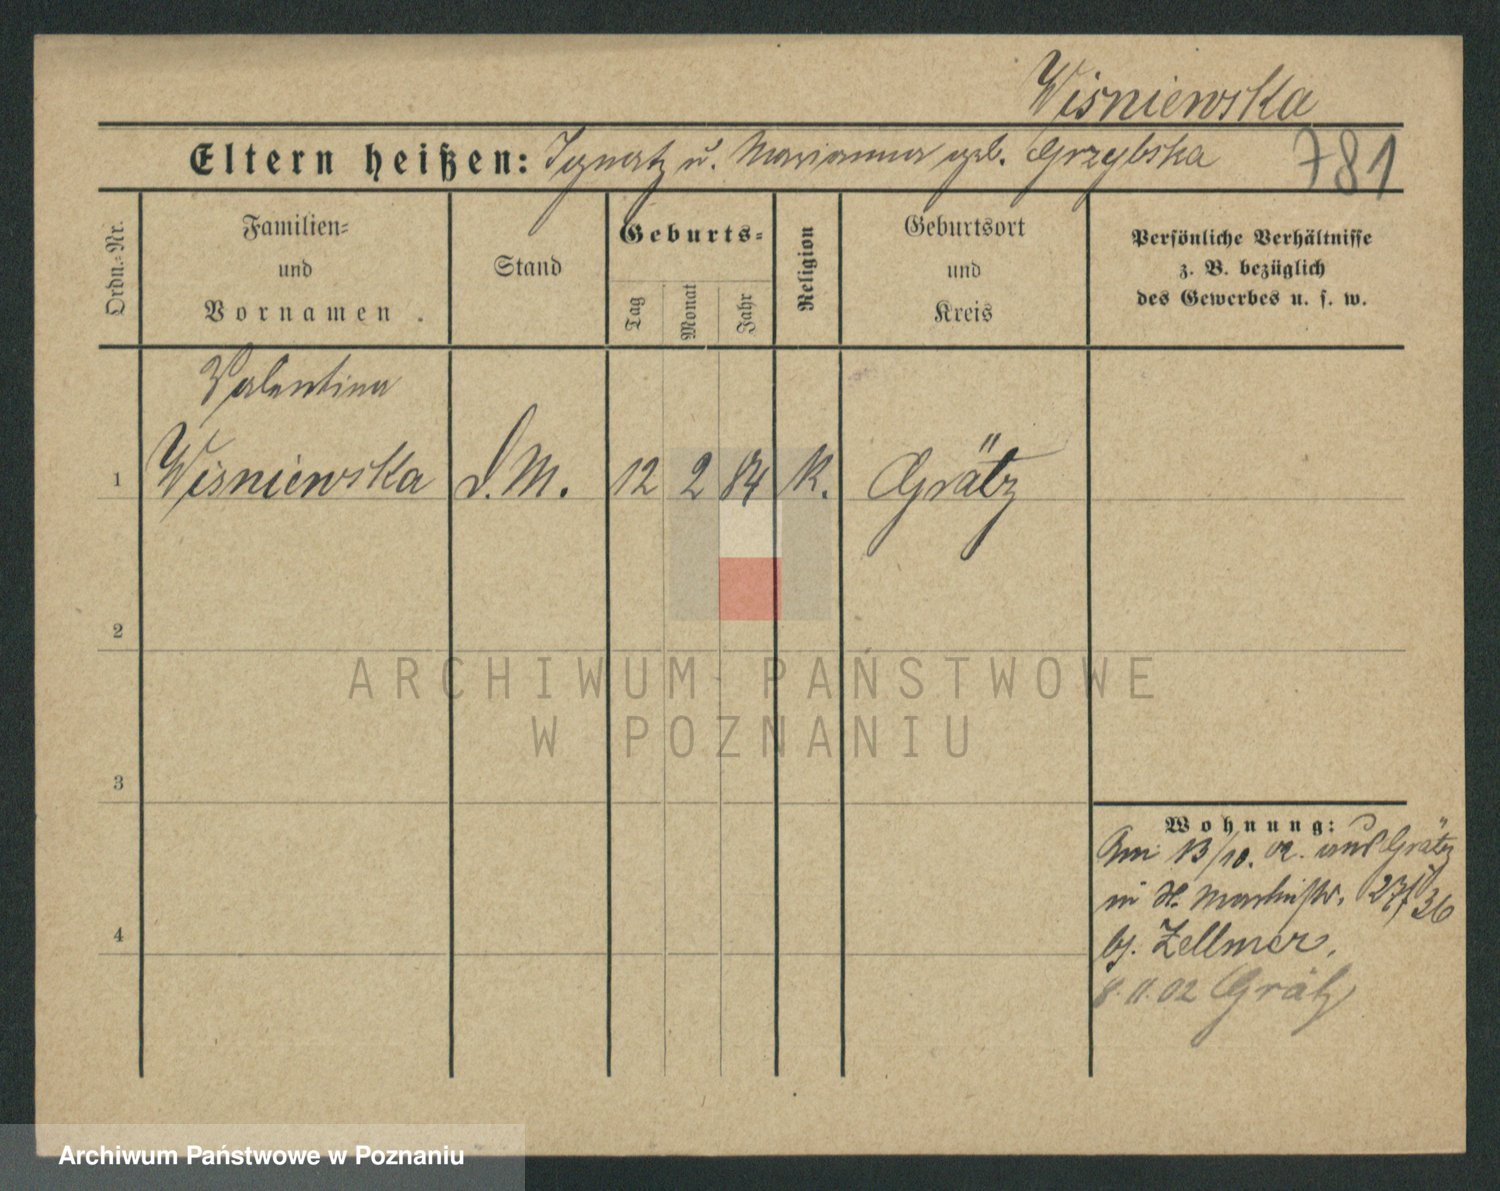 Wiśniewska
Eltern heißen: Ignatz u. Marianna geb. Grzybska
781
Ordn.-Nr.
Familien- und Vornamen
Stand
Geburts-
Tag
Monat
Jahr
Religion
Geburtsort und Kreis
Persönliche Verhältnisse
z. B. bezüglich
des Gewerbes u. s. w.
Valentina
1 Wiśniewska D. M. 12 2 84 K. Grätz
2
ARCHIWUM PAŃSTWOWE
W POZNANIU
3
Wohnung:
Am 13/10. 02. aus Grätz
in St. Martinstr. 27
bj. Zellmer.
4
8.11.02 Grätz
Archiwum Państwowe w Poznaniu